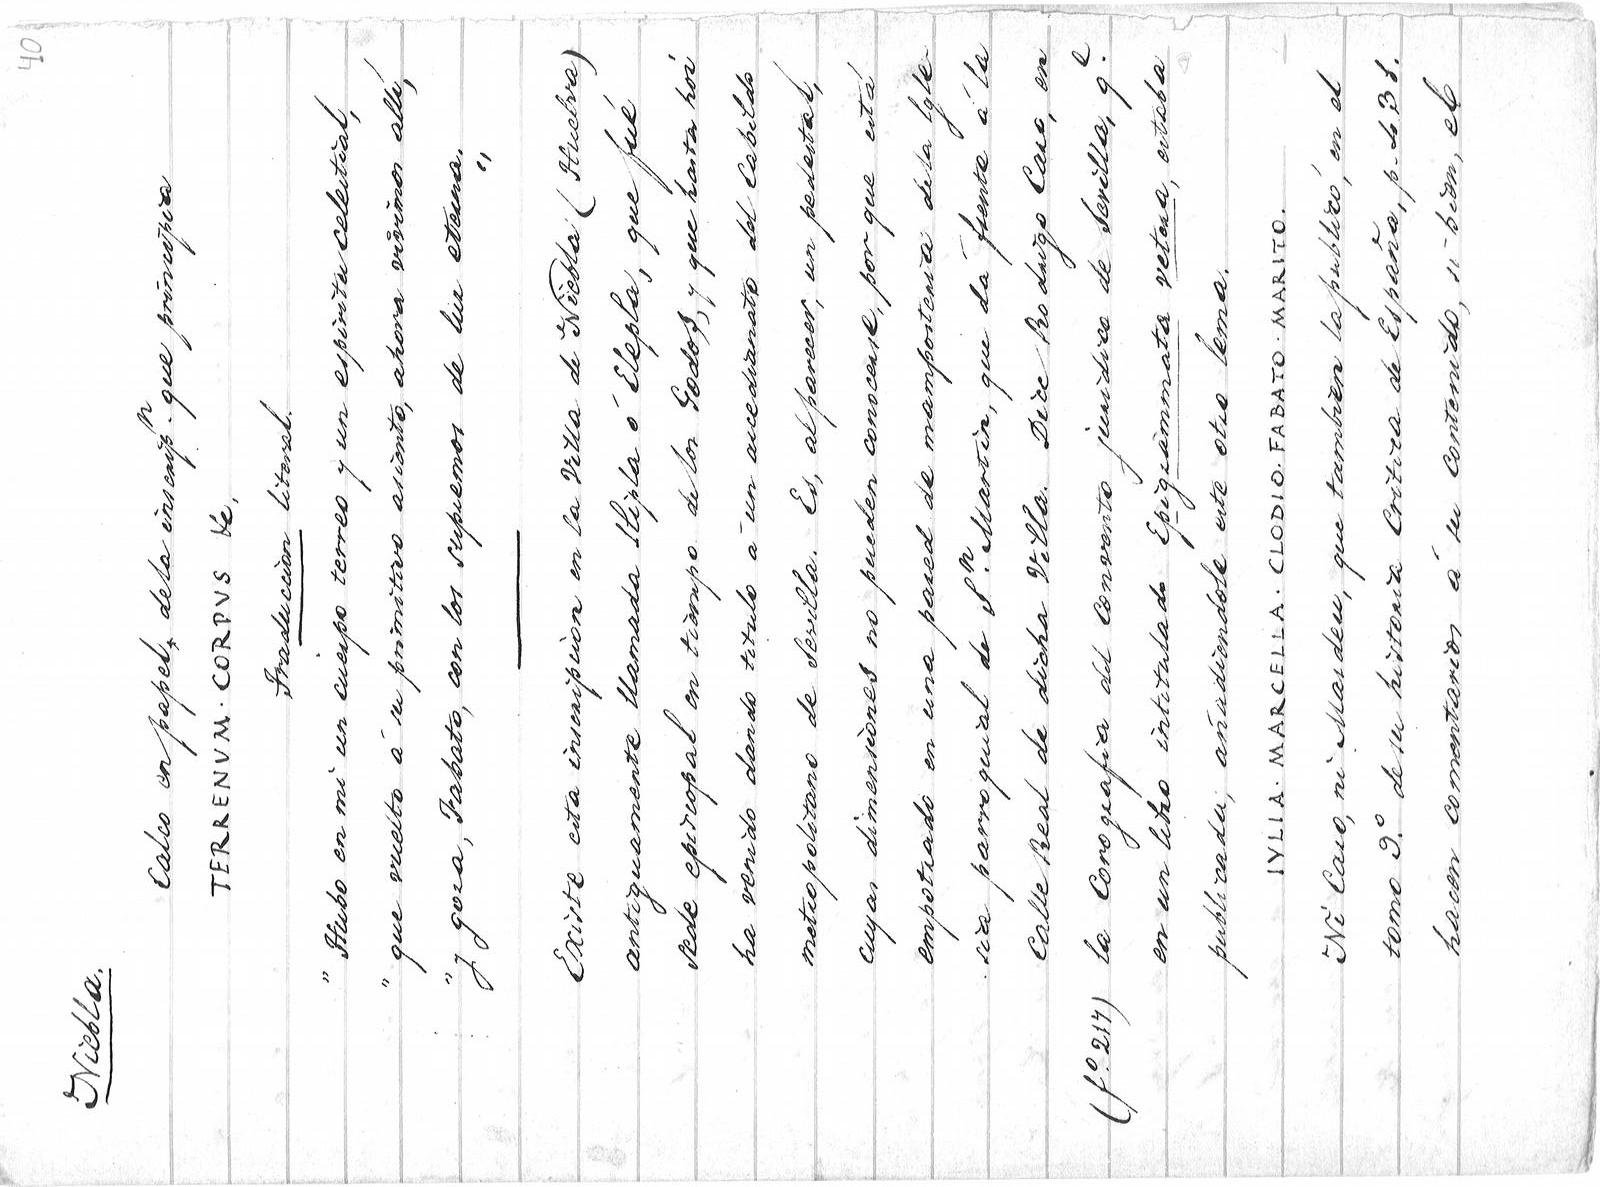 40
Niebla.
Calco en papel, de la inscripn. que principia
TERRENVM · CORPVS &c,
Traduccion literal.
" Hubo en mi un cuerpo terreo y un espiritu celestial,
" que vuelto á su primitivo asiento, ahora vivimos alli,
" y goza, Fabato, con los supremos de luz eterna. "
Existe esta inscripcion en la Villa de Niebla (Huelva)
antiguamente llamada Ilipla ó Elepla, que fué
sede episcopal en tiempo de los Godos, y que hasta hoi
ha venido dando titulo á un arcedianato del Cabildo
metropolitano de Sevilla. Es, al parecer, un pedestal,
cuyas dimensiones no pueden conocerse, por que está
empotrado en una pared de mamposteria de la Igle
sia parroquial de Sn. Martin, que dá frente á la
Calle Real de dicha Villa. Dice Rodrigo Caro, en
(fo. 217) la Corografia del convento juridico de Sevilla, q.e
en un libro intitulado Epigrammata vetera, estaba
publicada, añadiendole este otro lema.
IVLIA · MARCELLA · CLODIO · FABATO · MARITO.
Ni Caro, ni Masdeu, que tambien la publicó, en el
tomo 9.o de su historia Critica de España, p. de 3 8.
hacen comentarios á su contenido, si-bien, el